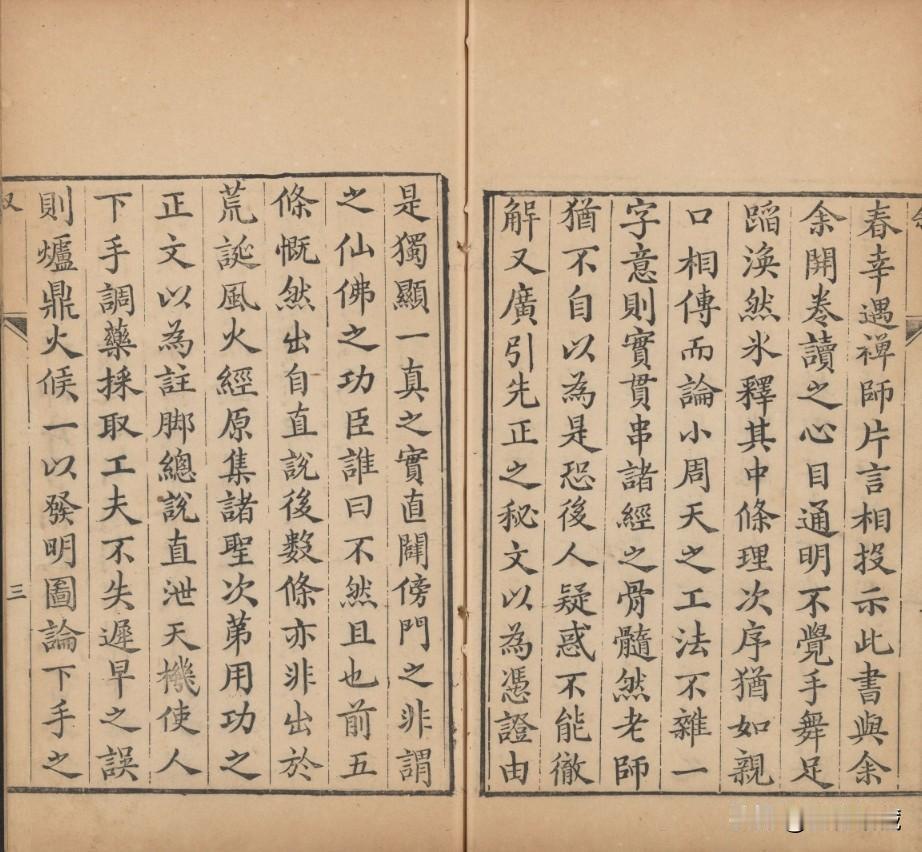 春幸遇禪師片言相投示此書與余
余開卷讀之心目通明不覺手舞足
蹈渙然氷釋其中條理次序猶如親
口相傳而論小周天之工法不雜一
字意則實貫串諸經之骨髓然老師
猶不自以為是恐後人疑惑不能徹
解又廣引先正之秘文以為憑證由
是獨顯一真之實直闢傍門之非謂
之仙佛之功臣誰曰不然且也前五
條慨然出自直說後數條亦非出於
荒誕風火經原集諸聖次第用功之
正文以為註脚總說直泄天機使人
下手調藥採取工夫不失遲早之誤
則爐鼎火候一以發明圖論下手之
三